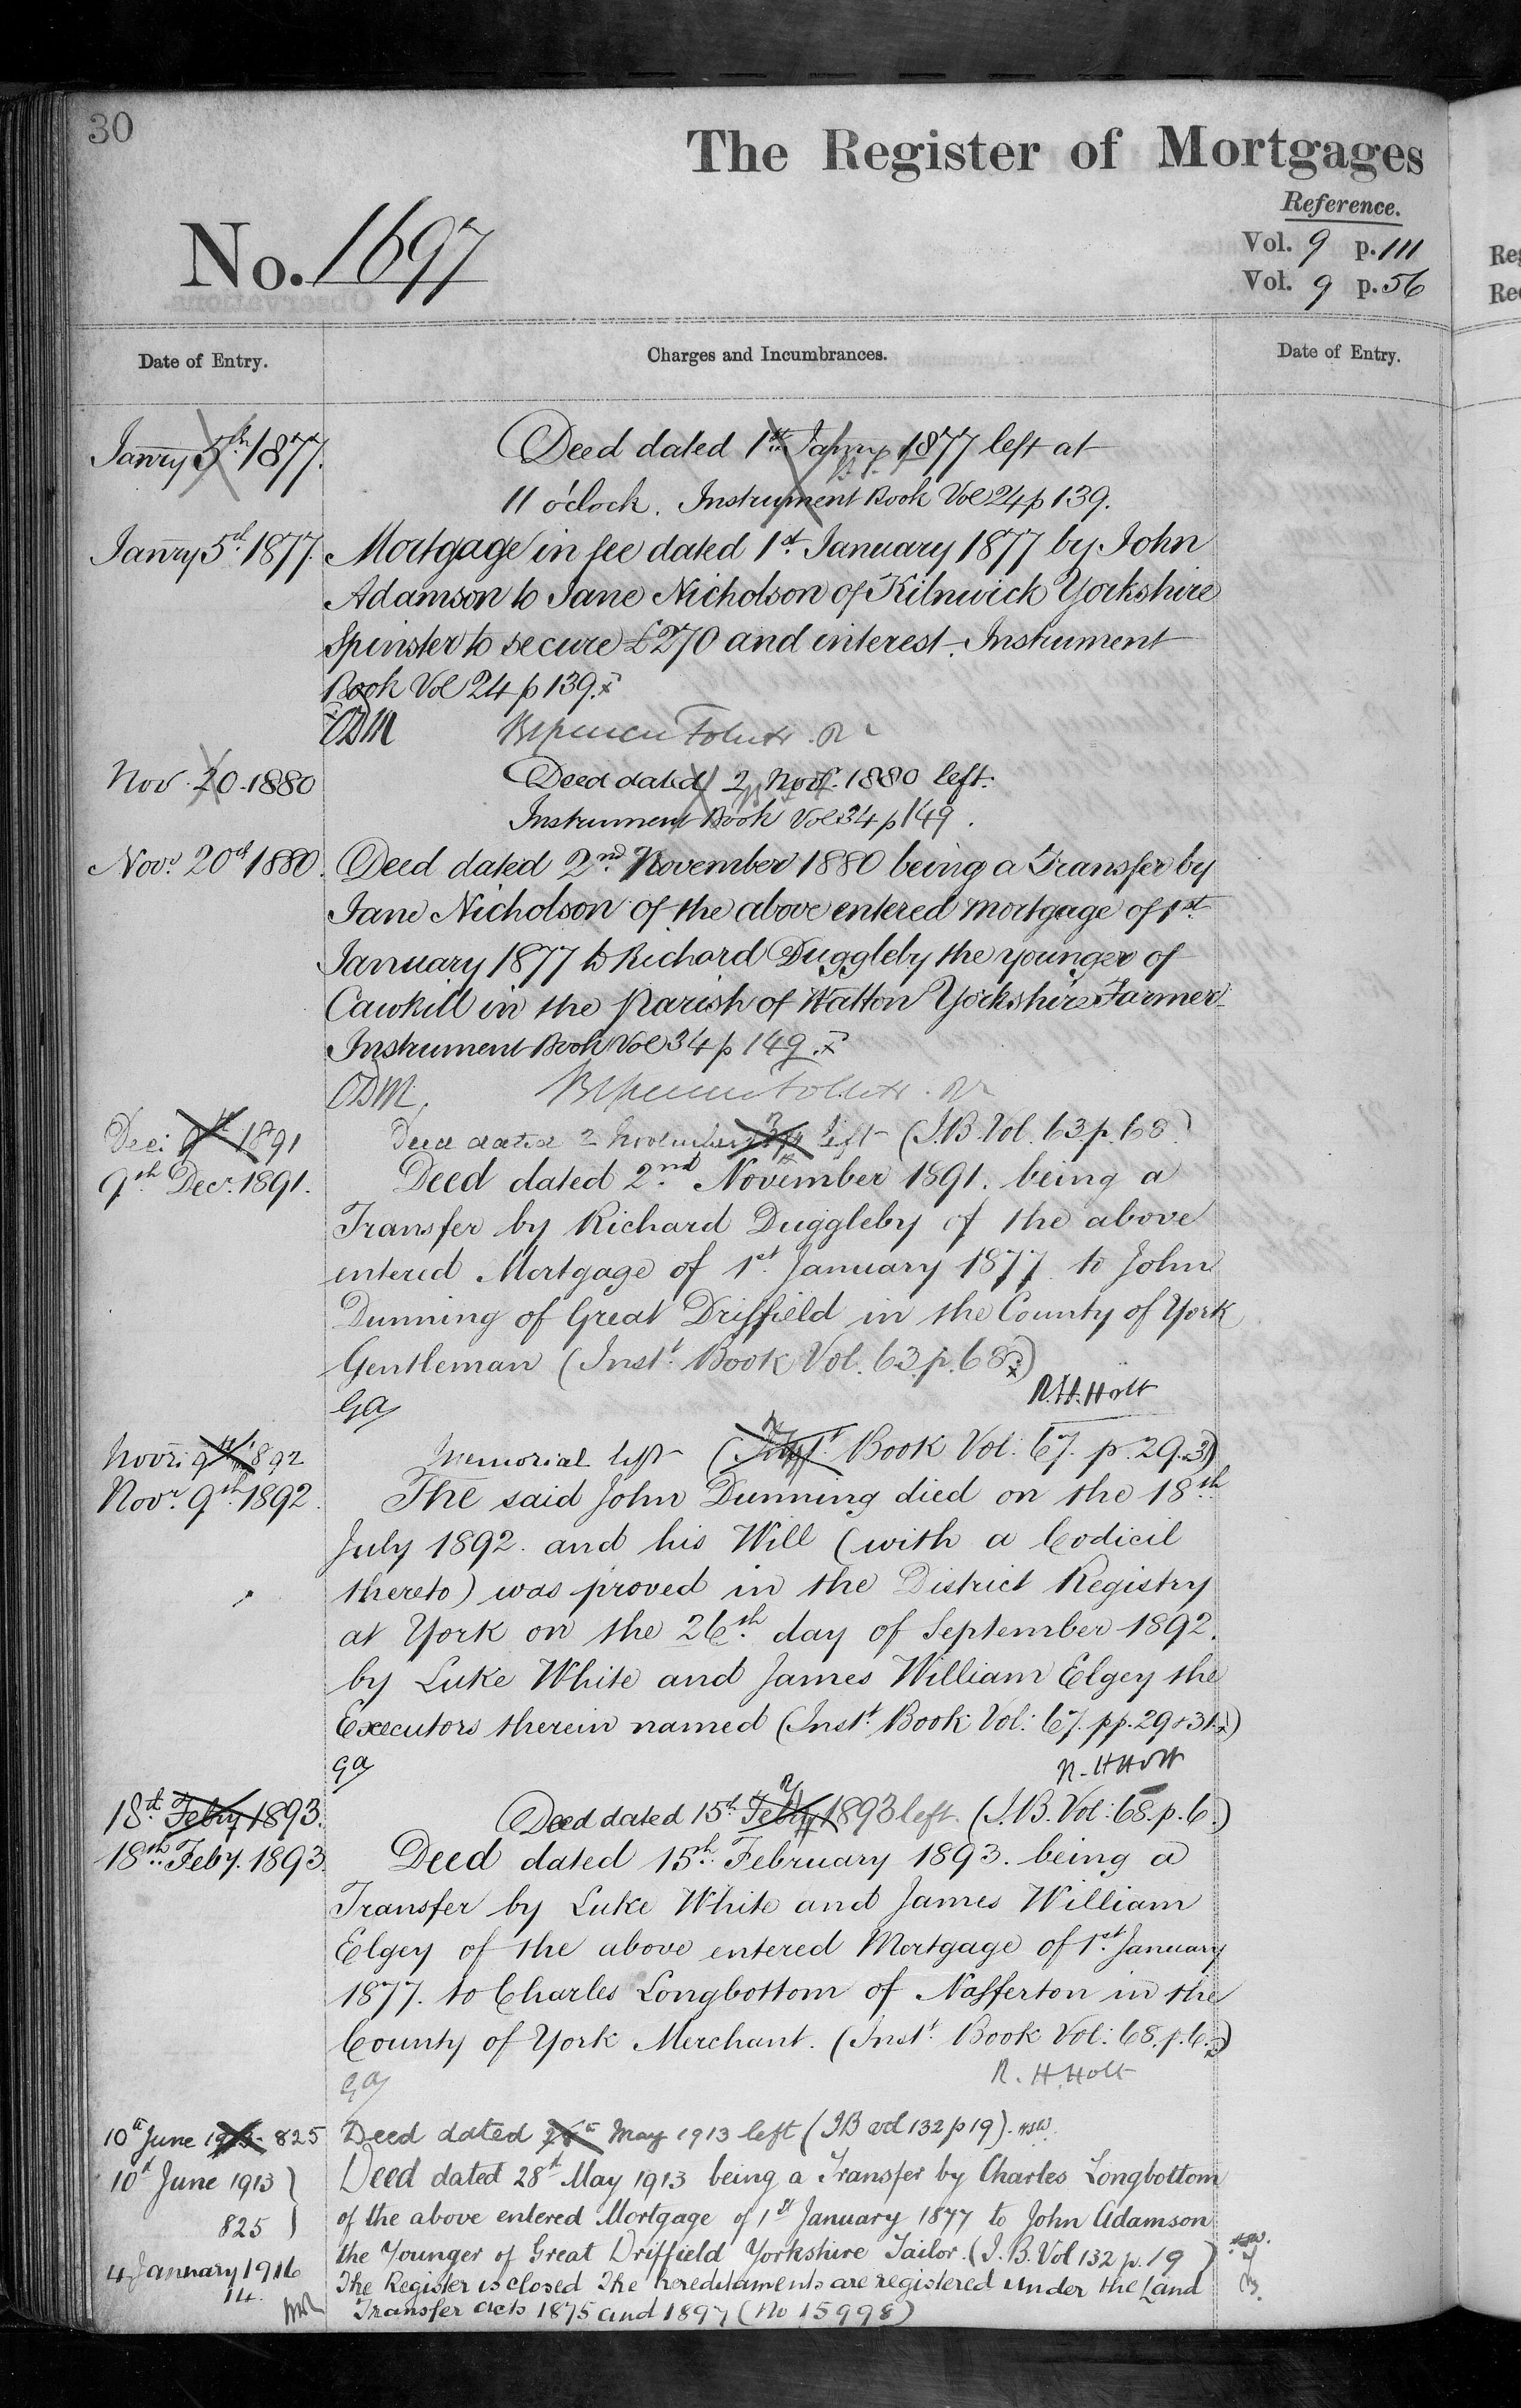 30
The Register of Mortgages
Reference.
No. 1697
Vol. 9 p. 111
Vol. 9 p. 56
Date of Entry.
Charges and Incumbrances.
Date of Entry.
Janry 5th 1877. Deed dated 1st Janry 1877 left at
11 o'clock. Instrument Book Vol 24 p 139.
Janry 5th 1877. Mortgage in fee dated 1st January 1877 by John
Adamson to Jane Nicholson of Kilnwick Yorkshire
Spinster to secure £270 and interest. Instrument
Book Vol 24 p 139. x
ODM
Nov. 20. 1880 Deed dated 2 Novr. 1880 left.
Instrument Book Vol 34 p 149.
Novr. 20th 1880. Deed dated 2nd November 1880 being a Transfer by
Jane Nicholson of the above entered mortgage of 1st
January 1877 to Richard Duggleby the younger of
Cawkill in the Parish of Watton Yorkshire Farmer
Instrument Book Vol 34 p 149. x
ODM.
Dec: 9th 1891 Deed dated 2 November left (I.B. Vol. 63 p. 68.)
9th Decr. 1891. Deed dated 2nd November 1891. being a
Transfer by Richard Duggleby of the above
entered Mortgage of 1st January 1877 to John
Dunning of Great Driffield in the County of York
Gentleman (Inst. Book Vol. 63. p. 68 x)
GA R.H. Holt
Novr: 9th 1892 Memorial left (Inst. Book Vol: 67. p. 29.31)
Novr. 9th 1892. The said John Dunning died on the 18th
July 1892. and his Will (with a Codicil
thereto) was proved in the District Registry
at York on the 26th day of September 1892.
by Luke White and James William Elgey the
Executors therein named (Inst. Book Vol: 67. pp. 29 & 31. x)
GA R. H Holt
18th Feby 1893. Deed dated 15th Feby 1893 left. (I.B. Vol: 68. p. 6.)
18th Feby. 1893. Deed dated 15th February 1893. being a
Transfer by Luke White and James William
Elgey of the above entered Mortgage of 1st January
1877. to Charles Longbottom of Nafferton in the
County of York Merchant. (Inst. Book Vol: 68. p. 6. x)
GA R. H. Holt
10th June 1913 825 Deed dated 28th May 1913 left (IB vol 132 p 19).
10th June 1913 } Deed dated 28th May 1913 being a Transfer by Charles Longbottom
825 } of the above entered Mortgage of 1st January 1877 to John Adamson
the Younger of Great Driffield Yorkshire Tailor. (I.B. Vol 132 p. 19)
4 January 1916 The Register is closed The hereditaments are registered under the Land
14. Transfer acts 1875 and 1897 (No 15998)